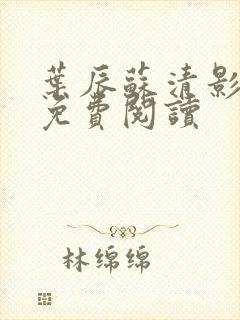 葉辰蘇清影
免費閱讀
林绵绵